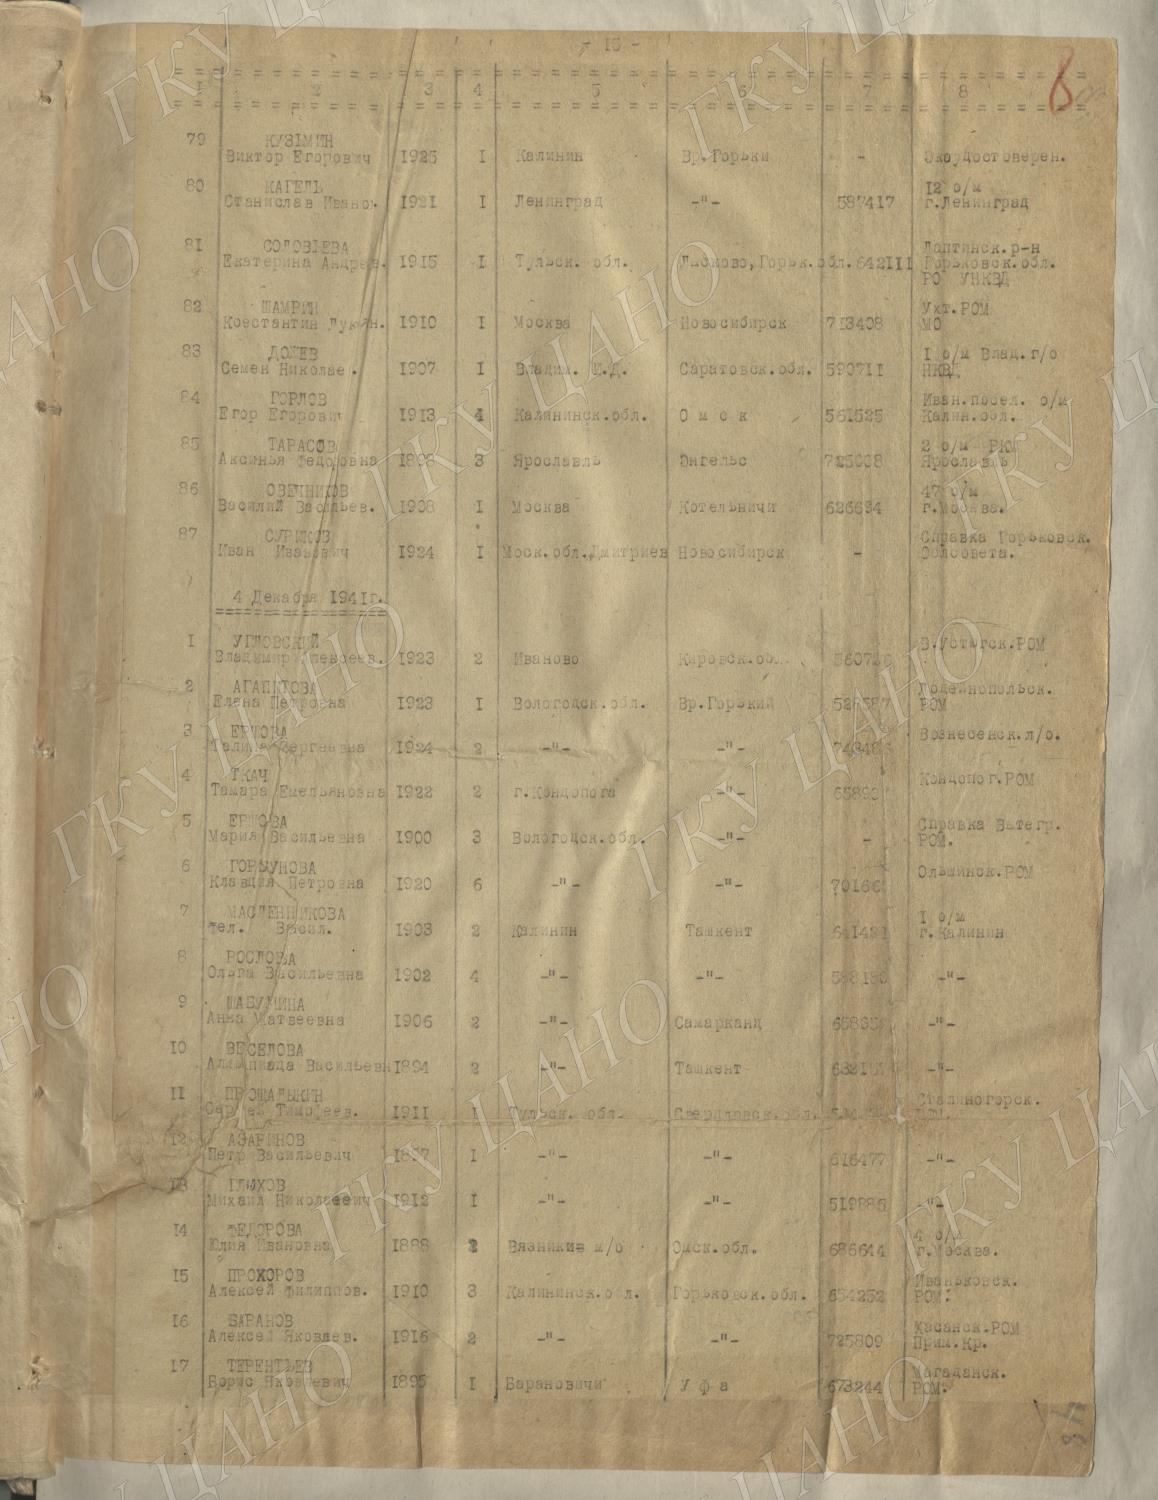 - 15 -
1 2 3 4 5 6 7 8
79 КУЗЬМИН
Виктор Егорович 1925 I Калинин Вр.Горьки - Экоудостоверен.
80 КАГЕЛЬ 12 о/м
Станислав Иванов. 1921 I Ленинград -"- 587417 г.Ленинград
81 СОЛОВЬЕВА Лаптинск.р-н
Екатерина Андреев. 1915 I Тульск. обл. Лысково,Горьк.обл. 642111 Горьковск.обл.
РО УНКВД
82 ШАМРИН Ухт.РОМ
Константин Лукян. 1910 I Москва Новосибирск 713408 МО
83 1 о/м Влад.г/о
Семен Николае . 1907 I Владим. И.Д. Саратовск.обл. 590711 НКВД
84 ГОРЛОВ Иван.посел. о/м
Егор Егорович 1913 4 Калининск.обл. О м с к 561525 Калин.обл.
85 ТАРАСОВ 2 о/м РКМ
Аксинья Федоровна 3 Ярославль Энгельс Ярославль
86 ОВЕЧНИКОВ 47 о/м
Василий Васильев. 1908 I Москва Котельничи 626634 г.Москва.
87 СУРИКОВ Справка Горьковск.
Иван Иванович 1924 I Моск.обл.Дмитриев Новосибирск - Облсовета.
4 Декабря 1941г.
1 УГЛОВСКИЙ В.Устюгск.РОМ
Владимир Алексеев. 1923 2 Иваново Кировск.обл.
2 АГАПИТОВА Лодейнопольск.
Елена Петровна 1923 I Вологодск.обл. Вр.Горький РОМ
3 ЕРШОВА Вознесенск.л/о.
Галина Сергеевна 1924 2 -"- -"-
4 ТКАЧ Кондопог.РОМ
Тамара Емельяновна 1922 2 г.Кондопога -"-
5 ЕРШОВА Справка Вытегр.
Мария Васильевна 1900 3 Вологодск.обл. -"- - РОМ.
6 ГОРШУНОВА Ольшинск.РОМ
Клавдия Петровна 1920 6 -"- -"-
7 МАСЛЕННИКОВА 1 о/м
Васил. 1903 2 Калинин Ташкент г.Калинин
8 РОСЛОВА
Ольга Васильевна 1902 4 -"- -"- -"-
9 ШАБУНИНА
Анна Матвеевна 1906 2 -"- Самарканд -"-
10 ВЕСЕЛОВА
Алимпиада Васильевн 1894 2 -"- Ташкент -"-
11 ПРОШАЛЫКИН Сталиногорск.
Сергей Тимофеев. 1911 I Тульск. обл. Свердловск.обл. РОМ.
12 АЗАРИНОВ
Петр Васильевич 1897 I -"- -"- 616477 -"-
13 ГЛУХОВ
Михаил Николаевич 1912 I -"- -"- 519885 -"-
14 ФЕДОРОВА 4 о/м
Юлия Ивановна 1888 2 Вязники м/о Омск.обл. 686644 г.Москва.
15 ПРОХОРОВ Иваньковск.
Алексей Филиппов. 1910 3 Калининск.обл. Горьковск.обл. 654252 РОМ.
16 БАРАНОВ Хасанск.РОМ
Алексей Яковлев. 1916 2 -"- -"- 725809 Прим.Кр.
17 ТЕРЕНТЬЕВ Магаданск.
Борис Яковлевич 1895 I Барановичи У ф а 673244 РОМ.
ГКУ ЦАНО